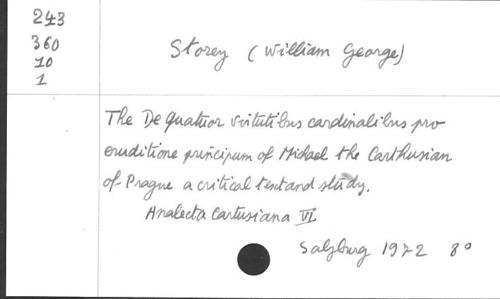 243
360
10
1
Storey (William George)
The De Quatuor virtutibus cardinalibus pro
eruditione principum of Michael the Carthusian
of Prague a critical text and study.
Analecta Cartusiana VI
Salzburg 1972 8°